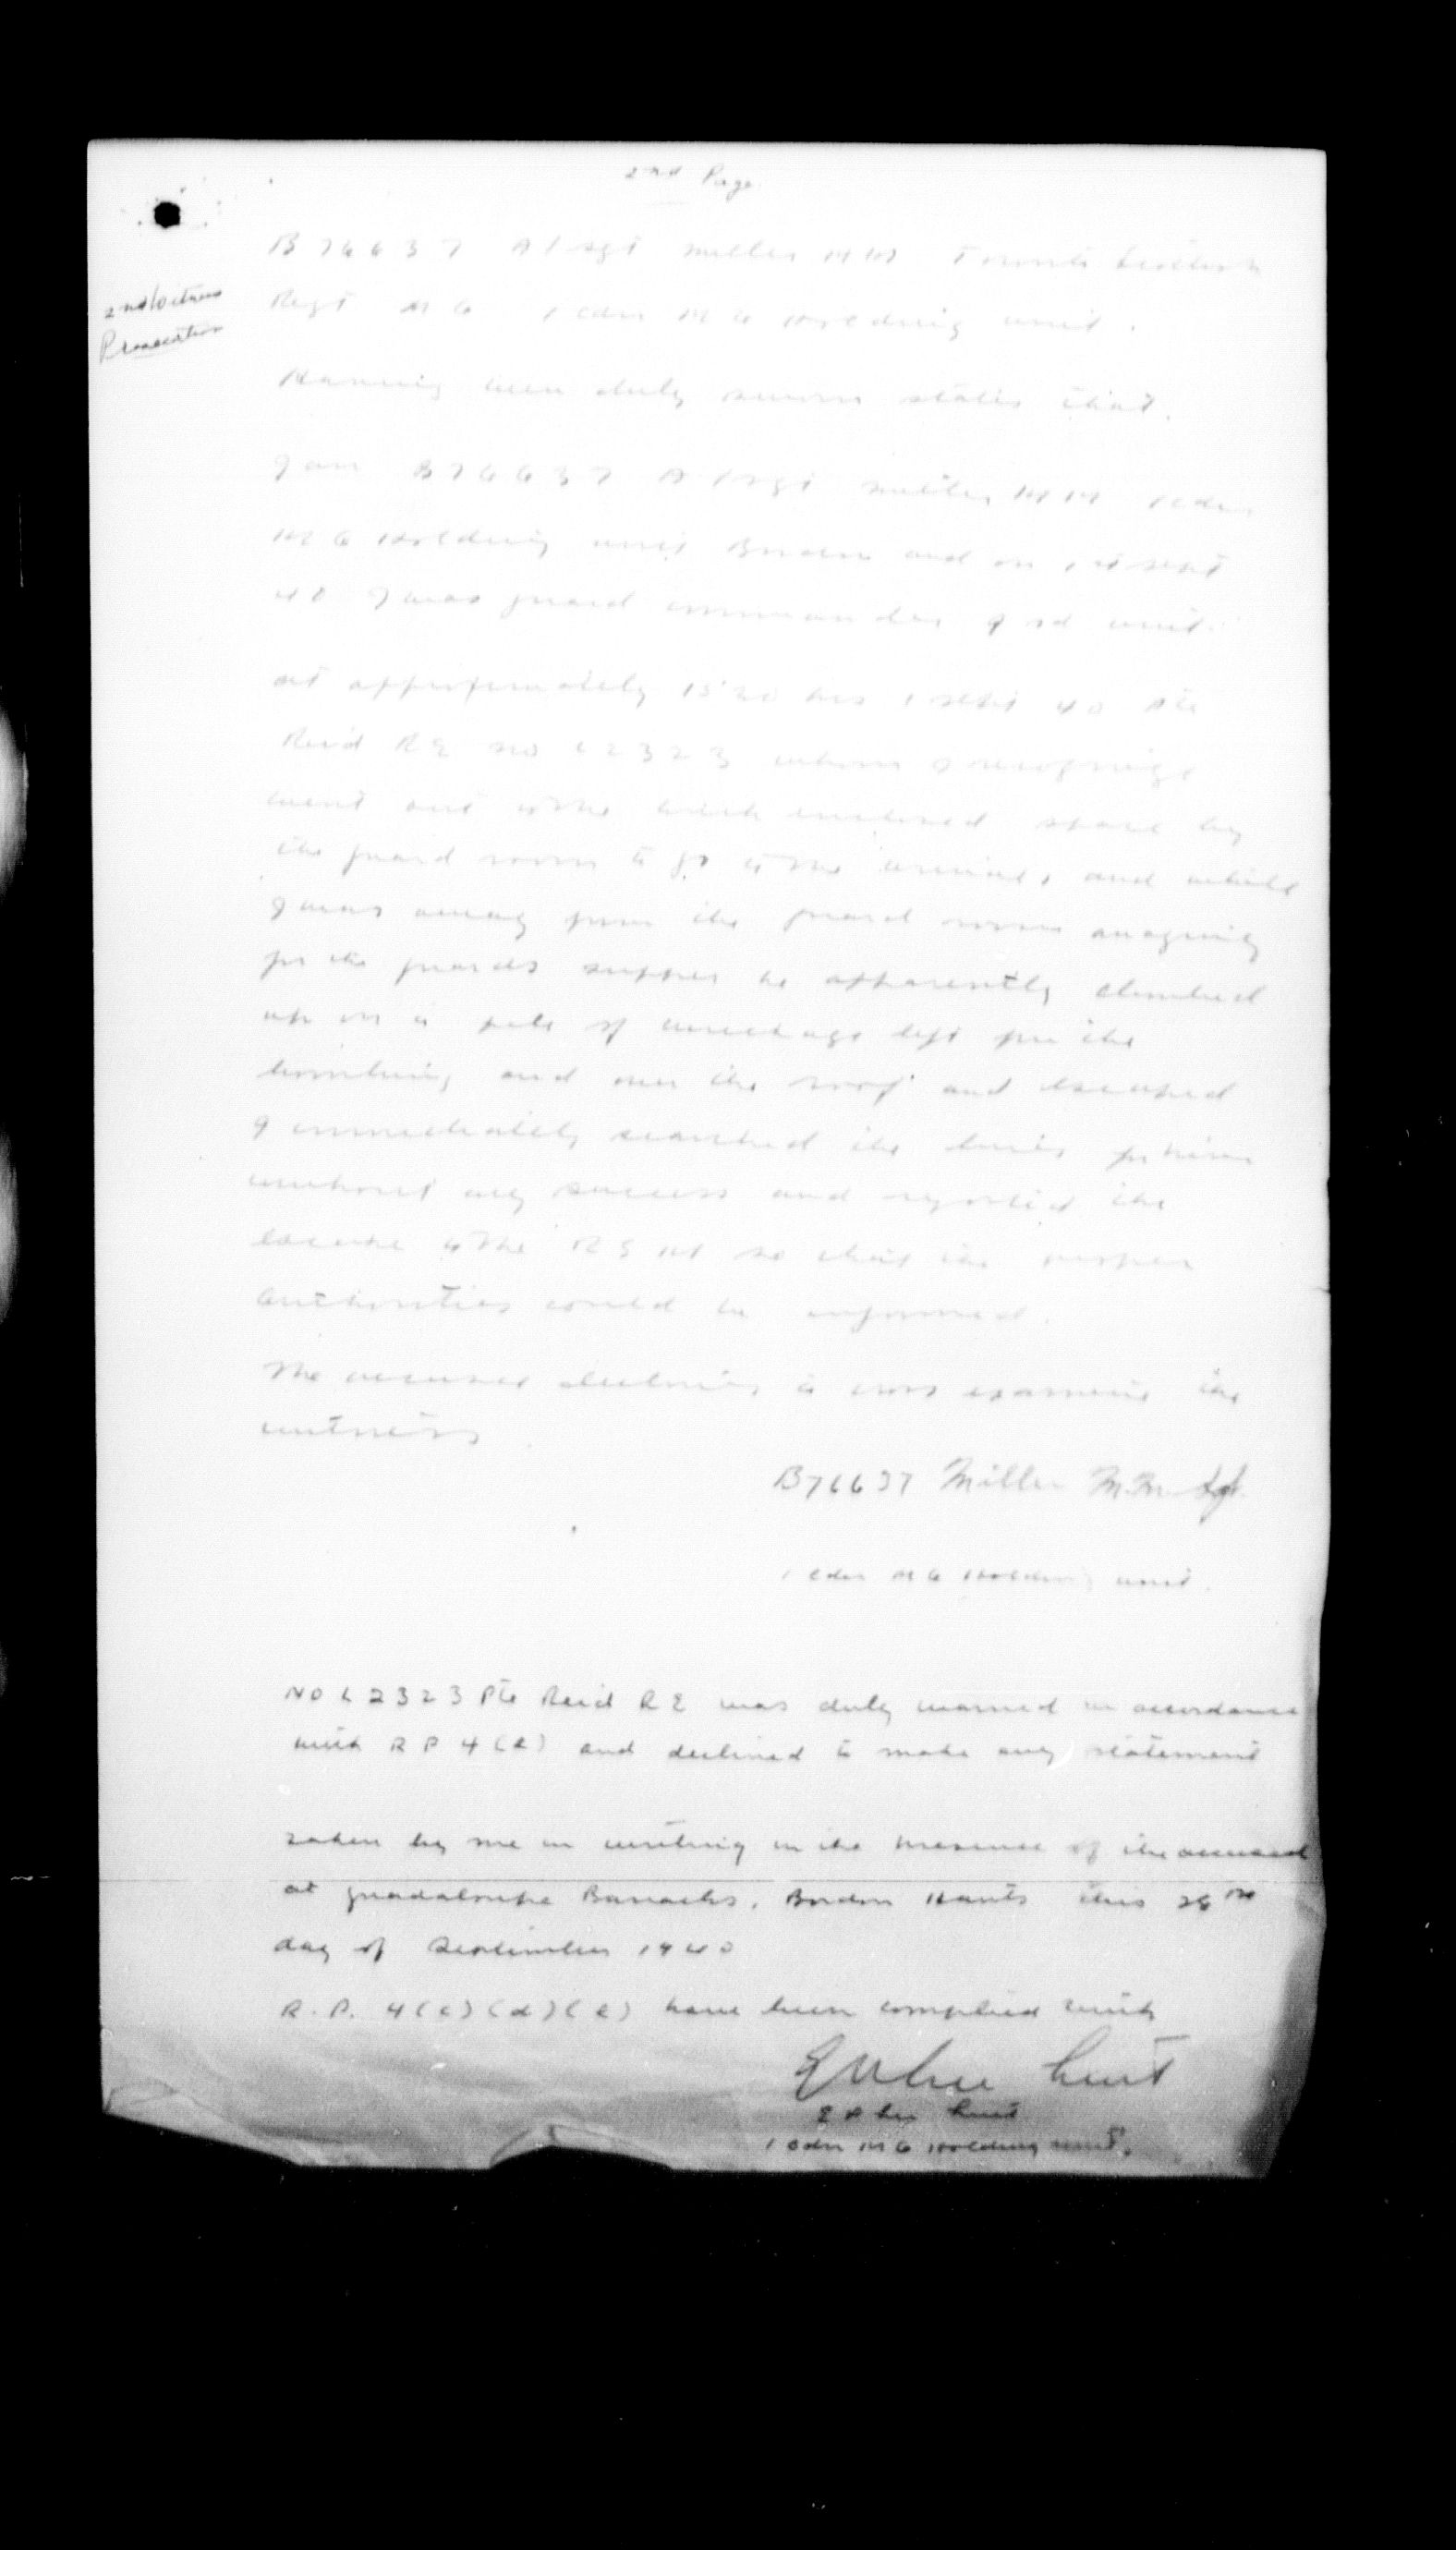 2nd Page
B 76637 A/Sgt Miller M M Toronto Scottish
2nd Witness
Prosecution
Regt M G 1 Cdn M G Holding unit.
Having been duly sworn states that.
I am B 76637 A/Sgt Miller M M 1 Cdn
M G Holding unit Bordon and on 1st Sept
40 I was guard commander of sd unit.
at approximately 15 20 hrs 1 Sept 40 Pte
Reid R E No L 2323 whom I recognize
went out to the brick enclosed space by
the guard room to go to the urinal, and while
I was away from the guard room
for the guards supper he apparently climbed
up on a pile of wreckage left from the
bombing and over the roof and escaped
I immediately searched the for him
without any success and reported the
escape to the R S M so that the proper
authorities could be informed.
The accused declines to cross examine the
witness
B76637 Miller M.M. Sgt.
1 Cdn M G Holding unit.
NO L 2323 Pte Reid R E was duly warned in accordance
with R P 4 (E) and declined to make any statement
Taken by me in writing in the presence of the accused
at Guadaloupe Barracks, Bordon Hants this 26th
day of September 1940
R. P. 4 (c) (d) (e) have been complied with
Lieut
Lieut
1 Cdn M G Holding unit.